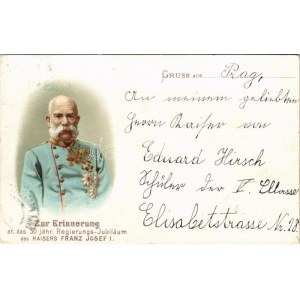 GRUSS aus Prag,
An meinem geliebten
Herrn Kaiser von
Eduard Hirsch
Schüler der V. Classe
Elisabetstrasse Nr. 28
Zur Erinnerung
an das 50 jähr. Regierungs-Jubiläum
des KAISERS FRANZ JOSEF I.